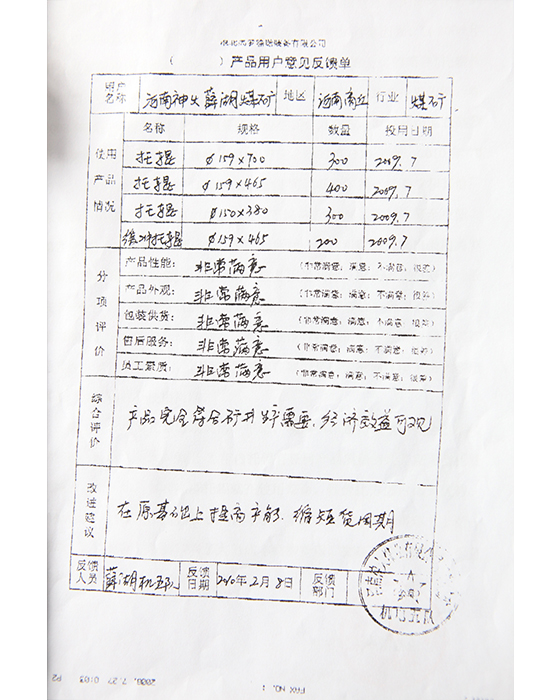 装备有限公司
（ ）产品用户意见反馈单
用户名称 河南神火薛湖煤矿 地区 河南商丘 行业 煤矿
使用产品情况 名称 规格 数量 投用日期
托辊 φ159×700 300 2009.7
托辊 φ159×465 400 2009.7
托辊 φ150×380 300 2009.7
托辊 φ159×465 200 2009.7
分项评价
产品性能: 非常满意 (非常满意; 满意; 不满意; 很差)
产品外观: 非常满意 (非常满意; 满意; 不满意; 很差)
包装供货: 非常满意 (非常满意; 满意; 不满意; 很差)
售后服务: 非常满意 (非常满意; 满意; 不满意; 很差)
员工素质: 非常满意 (非常满意; 满意; 不满意; 很差)
综合评价 产品完全符合矿井生产需要，经济效益可观
改进建议 在原基础上提高产能，缩短货周期
反馈人员 薛湖机 队 反馈日期 2010年2月8日 反馈部门
FAX NO. 1
P2